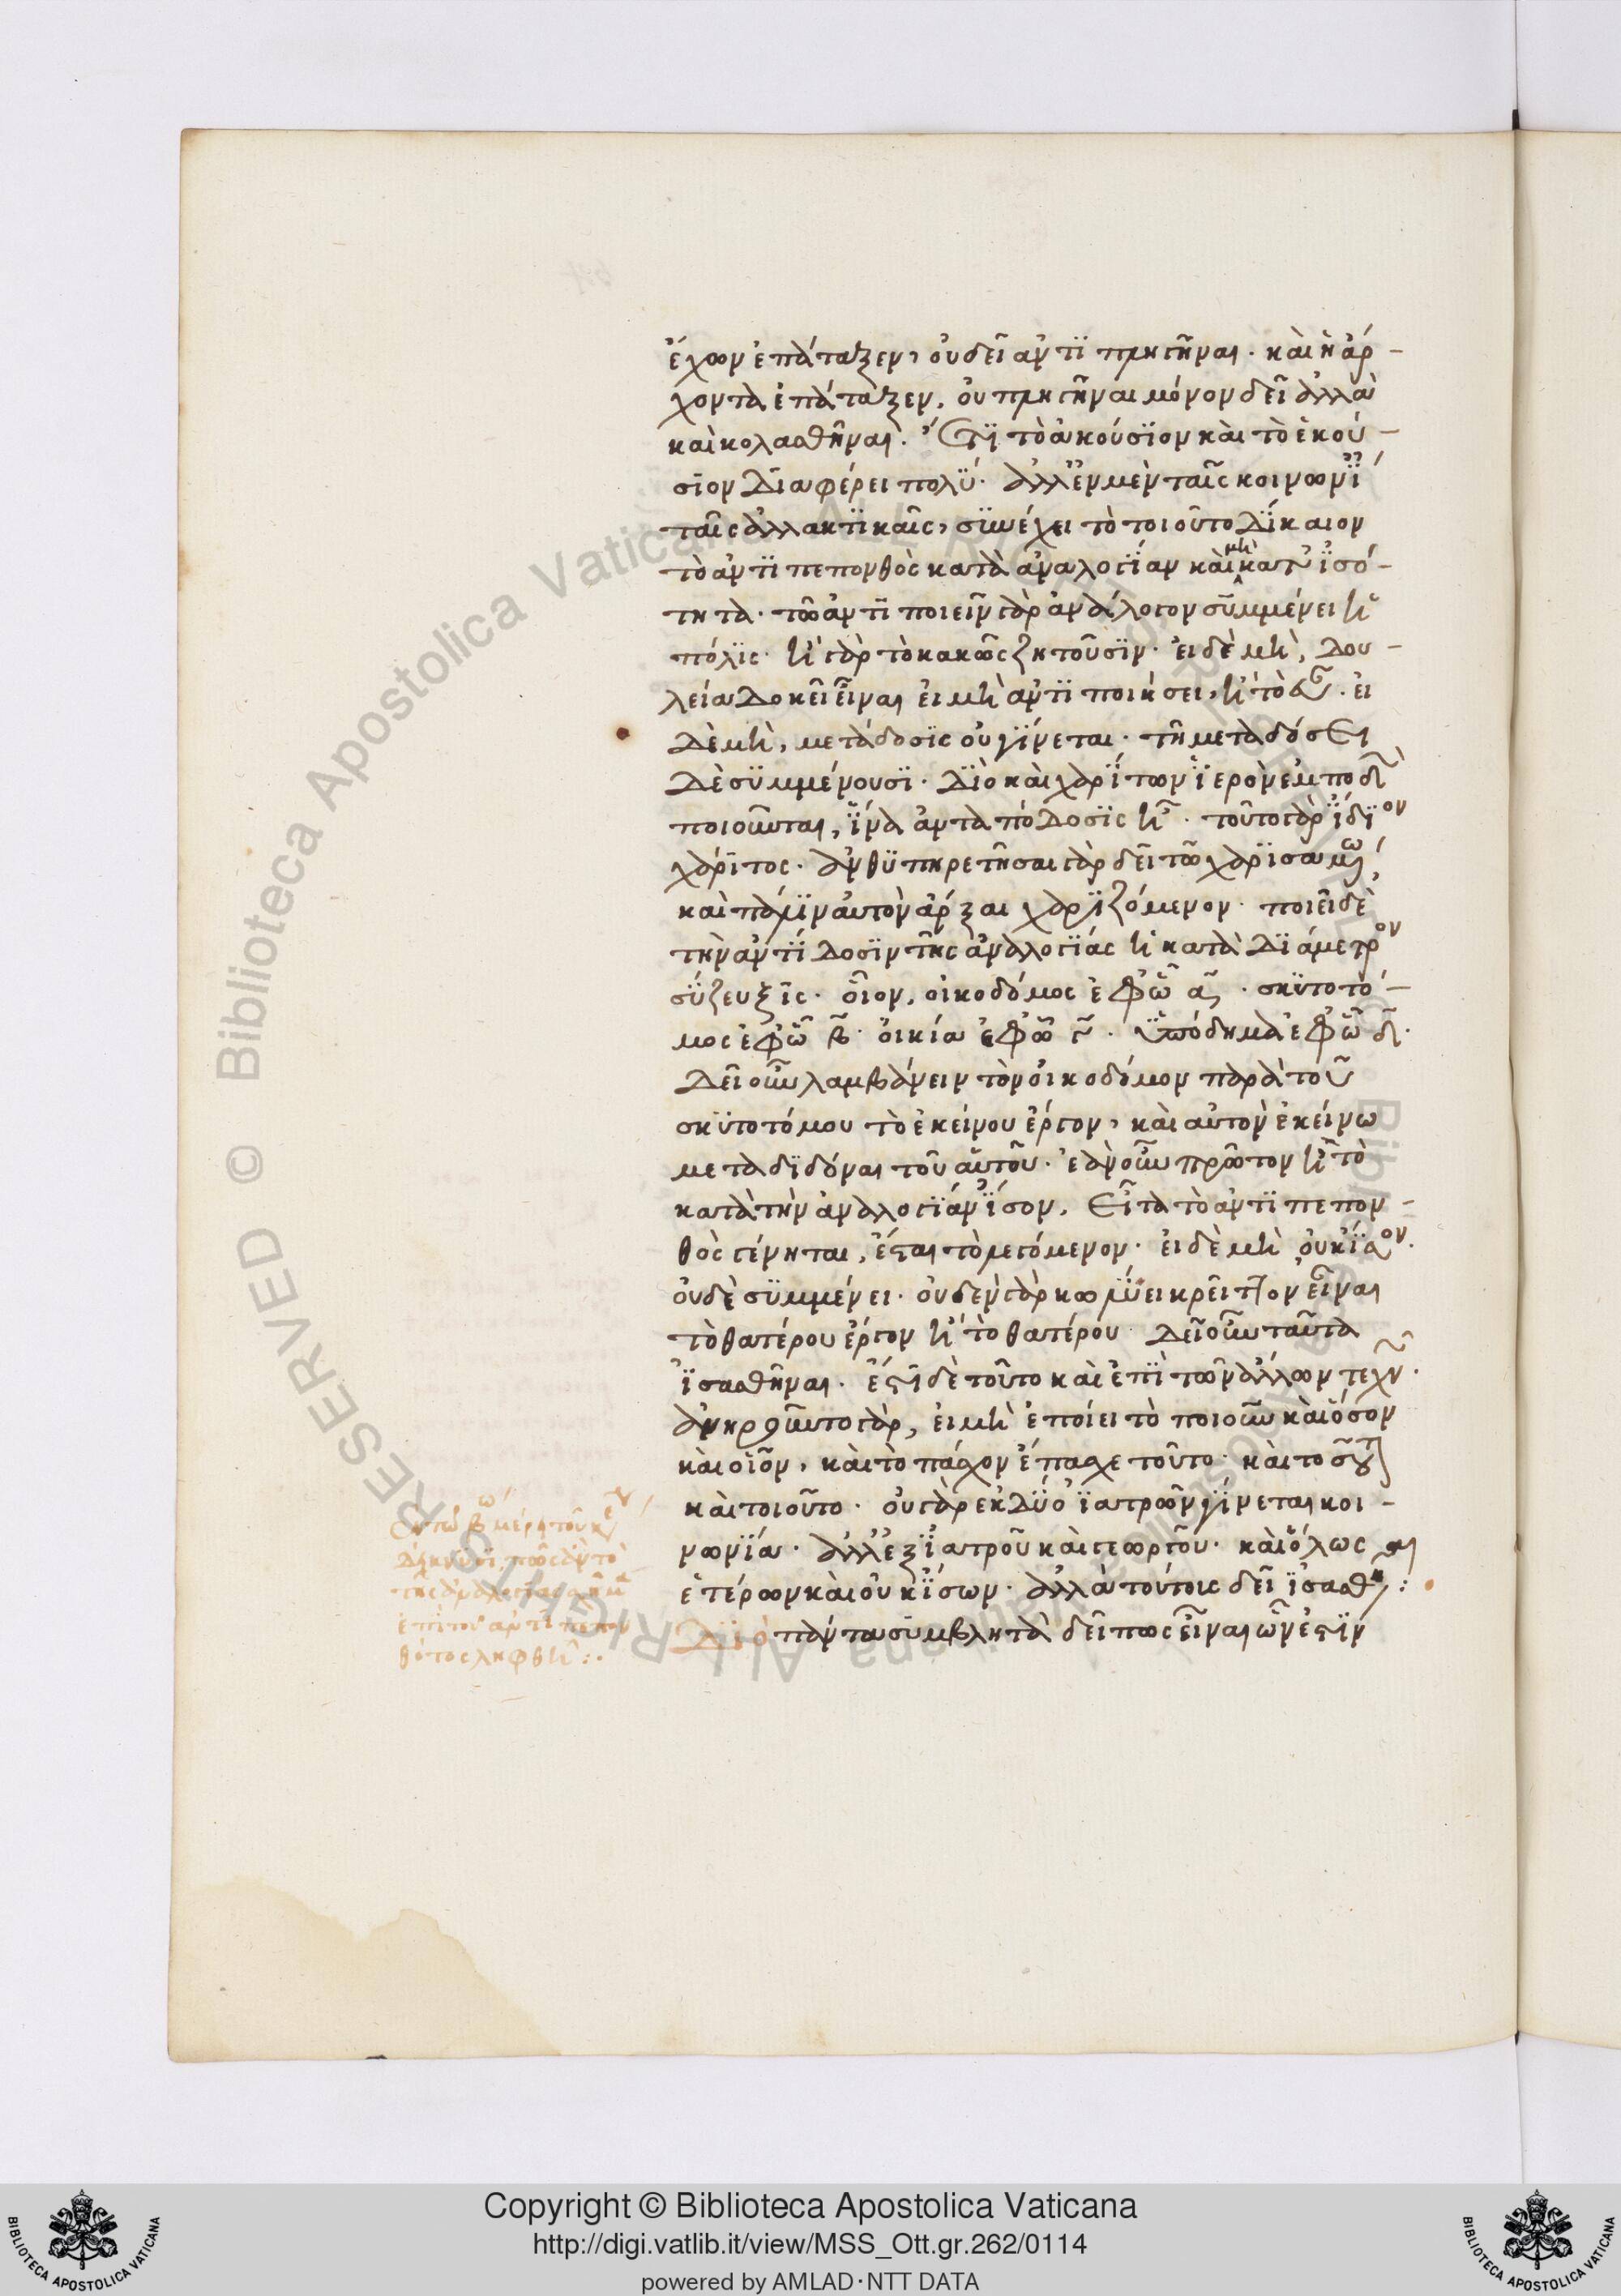 ἔχων ἐπάταξεν, οὐ δεῖ ἀντιπληγῆναι· καὶ εἰ ἄρ-
χοντα ἐπάταξεν, οὐ πληγῆναι μόνον δεῖ ἀλλὰ
καὶ κολασθῆναι. Ἔτι τὸ ἀκούσιον καὶ τὸ ἑκού-
σιον διαφέρει πολύ. ἀλλ' ἐν μὲν ταῖς κοινωνί
ταῖς ἀλλακτικαῖς, συνέχει τὸ τοιοῦτο δίκαιον
τὸ ἀντιπεπονθὸς κατὰ ἀναλογίαν καὶ μὴ κατ' ἰσό-
τητα· τῶ ἀντιποιεῖν γὰρ ἀνάλογον συμμένει ἡ
πόλις· ἢ γὰρ τὸ κακῶς ζητοῦσιν· εἰ δὲ μὴ, δου-
λεία δοκεῖ εἶναι εἰ μὴ ἀντιποιήσει, ἢ τὸ εὖ. εἰ
δὲ μὴ, μετάδοσις οὐ γίνεται· τῆ μεταδόσει
δὲ συμμένουσι. Διὸ καὶ χαρίτων ἱερὸν ἐμποδὼ
ποιοῦνται, ἵνα ἀνταπόδοσις ἦ. τοῦτο γὰρ ἴδιον
χάριτος. ἀνθυπηρετῆσαι γὰρ δεῖ τῶ χαρισαμένω,
καὶ πάλιν αὐτὸν ἄρξαι χαριζόμενον. ποιεῖ δὲ
τὴν ἀντίδοσιν τῆς ἀναλογίας ἡ κατὰ διάμετρον
σύζευξις. οἷον, οἰκοδόμος ἐφ' ὧ α. σκυτοτό-
μος ἐφ' ὧ β. οἰκία ἐφ' ὧ γ. ὑπόδημα ἐφ' ὧ δ.
Δεῖ οὖν λαμβάνειν τὸν οἰκοδόμον παρὰ τοῦ
σκυτοτόμου τὸ ἐκείνου ἔργον, καὶ αὐτὸν ἐκείνω
μεταδιδόναι τοῦ αὑτοῦ. ἐὰν οὖν πρῶτον ἦ τὸ
κατὰ τὴν ἀναλογίαν ἴσον, εἶτα τὸ ἀντιπεπον-
θὸς γένηται, ἔσται τὸ λεγόμενον. εἰ δὲ μὴ οὐκ ἴσον.
οὐδὲ συμμένει. οὐδὲν γὰρ κωλύει κρεῖττον εἶναι
τὸ θατέρου ἔργον ἢ τὸ θατέρου. Δεῖ οὖν ταῦτα
ἰσασθῆναι. ἔστι δὲ τοῦτο καὶ ἐπὶ τῶν ἄλλων τεχν.
ἀνηροῦντο γὰρ, εἰ μὴ ἐποίει τὸ ποιοῦν καὶ ὅσον
καὶ οἷον, καὶ τὸ πάσχον ἔπασχε τοῦτο. καὶ τοσοῦτον
καὶ τοιοῦτο. οὐ γὰρ ἐκ δύο ἰατρῶν γίνεται κοι-
νωνία. ἀλλ' ἐξ ἰατροῦ καὶ γεωργοῦ. καὶ ὅλως
ἑτέρων καὶ οὐκ ἴσων. ἀλλὰ τούτοις δεῖ ἰσασθη:
Διὸ πάντα συμβλητὰ δεῖ πως εἶναι ὧν ἐστὶν
Ἐν τῶ β μέρει τοῦ κε
δείκνυσι, πῶς ἂν τὸ
τῆς ἀναλογίας σχῆμα
ἐπὶ τοῦ ἀντιπεπον
θότος ληφθῆ:.
Copyright © Biblioteca Apostolica Vaticana
http://digi.vatlib.it/view/MSS_Ott.gr.262/0114
powered by AMLAD·NTT DATA
BIBLIOTECA APOSTOLICA VATICANA
BIBLIOTECA APOSTOLICA VATICANA